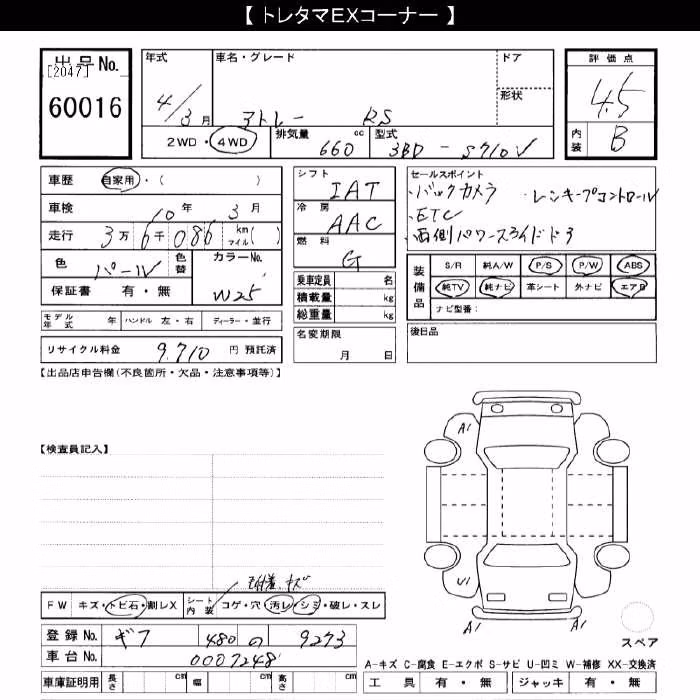 【 トレタマEXコーナー 】
出品No.
[2047]
60016
年式 車名・グレード ドア
4/3月 アトレー RS 形状
2WD・4WD 排気量 660 cc 型式 3BD-S710V
評価点
4.5
内装 B
車歴 自家用・( )
車検 10年 3月
走行 3万 6千 086 km マイル( )
色 パール 色替 カラーNo. W25
保証書 有・無
モデル年式 年 ハンドル 左・右 ディーラー・並行
リサイクル料金 9,710 円 預託済
シフト IAT
冷房 AAC
燃料 G
乗車定員 名
積載量 kg
総重量 kg
名変期限
月 日
セールスポイント
・バックカメラ ・レーンキープコントロール
・ETC
・両側パワースライドドア
装備品 S/R 純A/W P/S P/W ABS
純TV 純ナビ 革シート 外ナビ エアB
ナビ型番:
後日品
【出品店申告欄(不良箇所・欠品・注意事項等)】
【検査員記入】
A1 A1
U1 A1
スペア
キズ
FW キズ・トビ石・割レX シート内装 コゲ・穴・汚レ・シミ・破レ・スレ
登録No. ギフ 480 の 9273
車台No. 0007248
車庫証明用 長さ cm 幅 cm 高さ cm
A-キズ C-腐食 E-エクボ S-サビ U-凹ミ W-補修 XX-交換済
工具 有・無 ジャッキ 有・無